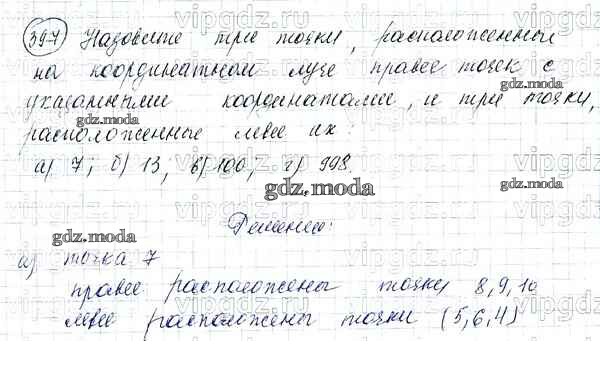 397 Назовите три точки, расположенные
на координатном луче правее точек с
указанными координатами, и три точки,
расположенные левее их:
а) 7; б) 13, в) 100, г) 998.
Решение:
а) точка 7
правее расположены точки 8, 9, 10
левее расположены точки (5, 6, 4)
vipgdz.com
gdz.moda
gdz.moda
gdz.moda
gdz.moda
gdz.moda